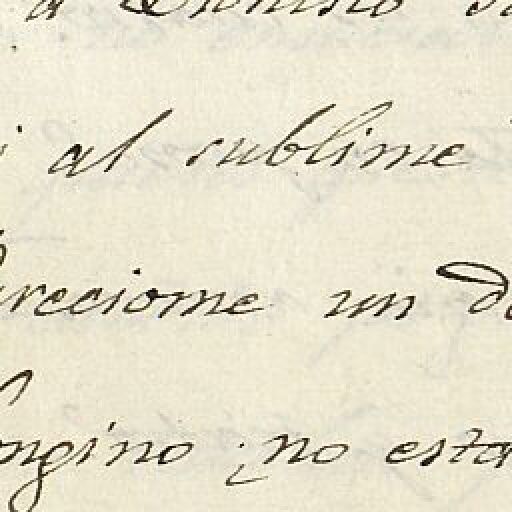 a Dionisio
al sublime
areciome un
ongino ¿no esta